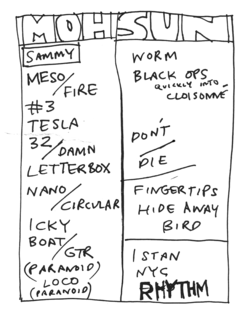 MOHSUN
SAMMY
MESO/FIRE
#3
TESLA
32/DAMN
LETTERBOX
NANO/CIRCULAR
ICKY
BOAT/GTR
(PARANOID)
LOCO
(PARANOID)
WORM
BLACK OPS
QUICKLY INTO
CLOISONNÉ
DON'T
DIE
FINGERTIPS
HIDE AWAY
BIRD
ISTAN
NYC
RHYTHM